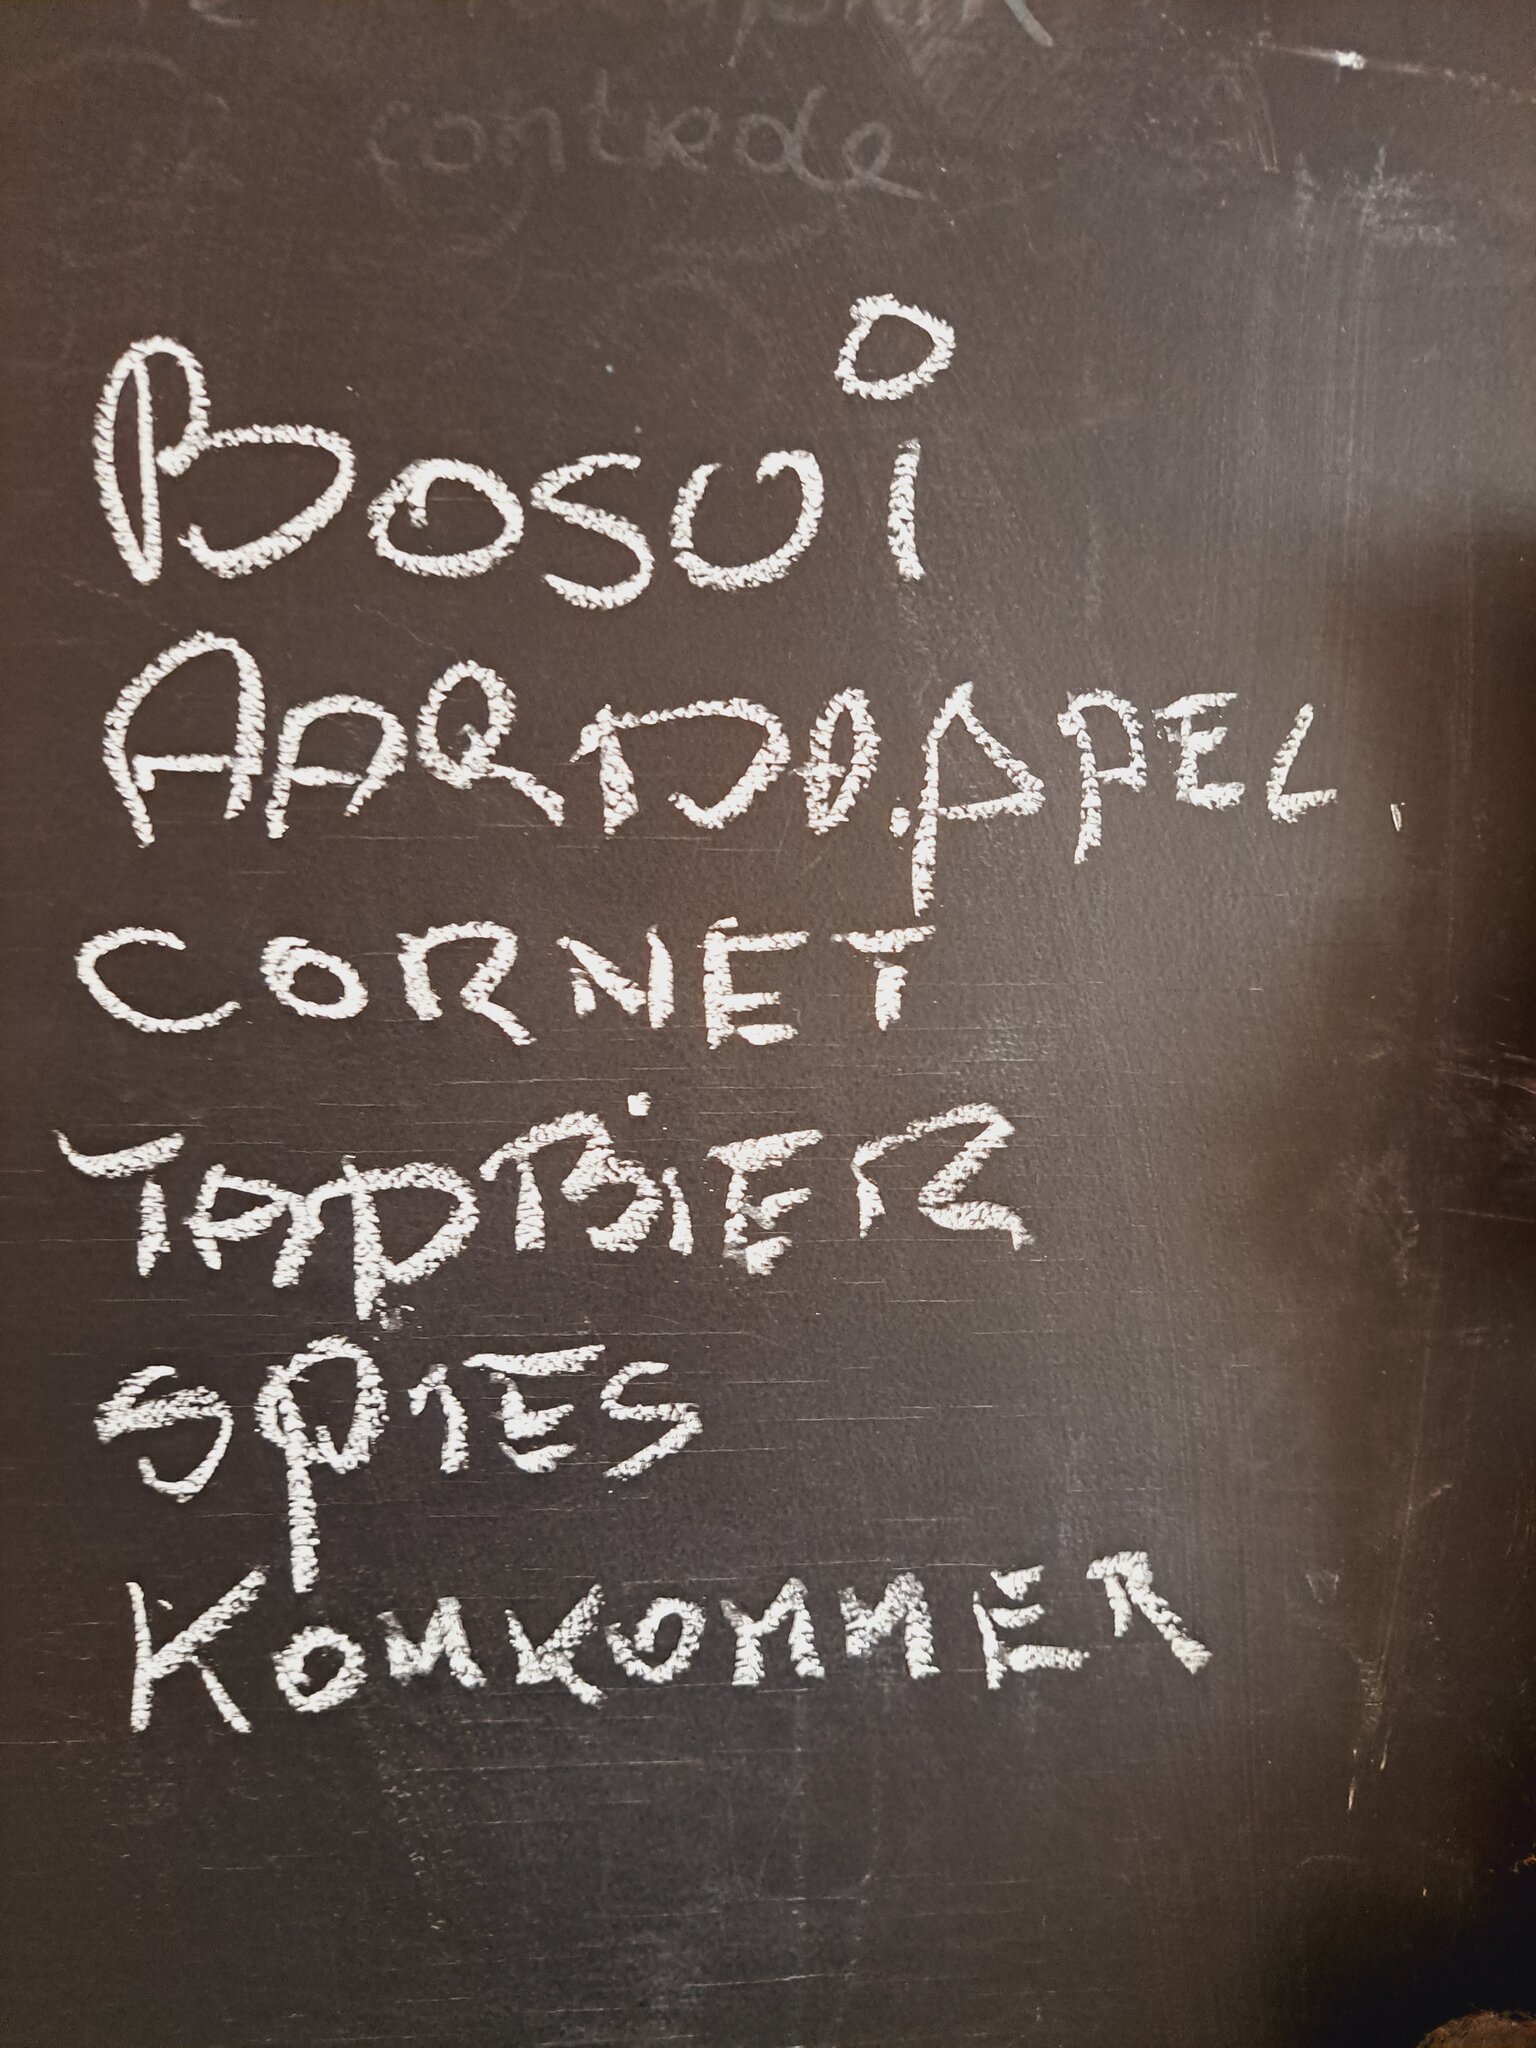 controle
BOSUi
AARDAPPEL
CORNET
TAPBiER
SPIES
KOMKOMMER